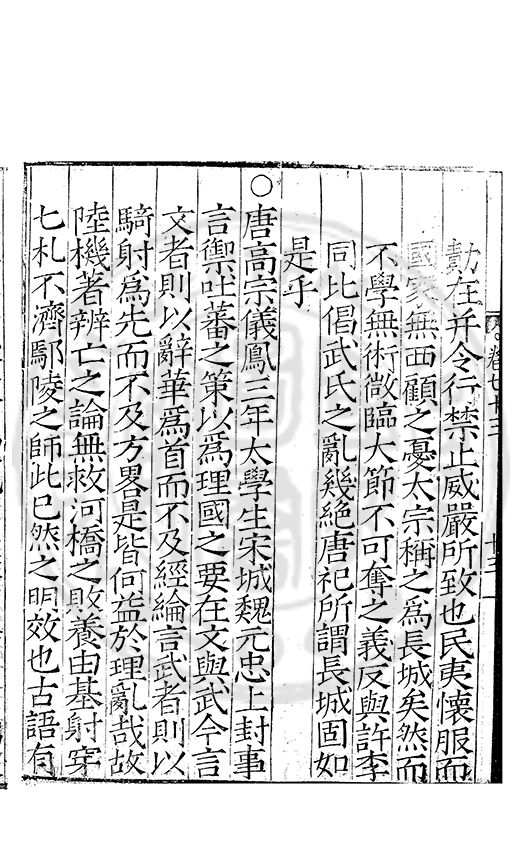 勣在并令行禁止威嚴所致也民夷懷服而
國家無西顧之憂太宗稱之爲長城矣然而
不學無術微臨大節不可奪之義反與許李
同比倡武氏之亂幾絶唐祀所謂長城固如
是乎
○唐高宗儀鳳三年太學生宋城魏元忠上封事
言禦吐蕃之策以爲理國之要在文與武今言
文者則以辭華爲首而不及經綸言武者則以
騎射爲先而不及方畧是皆何益於理亂哉故
陸機著辨亡之論無救河橋之敗養由基射穿
七札不濟鄢陵之師此已然之明效也古語有